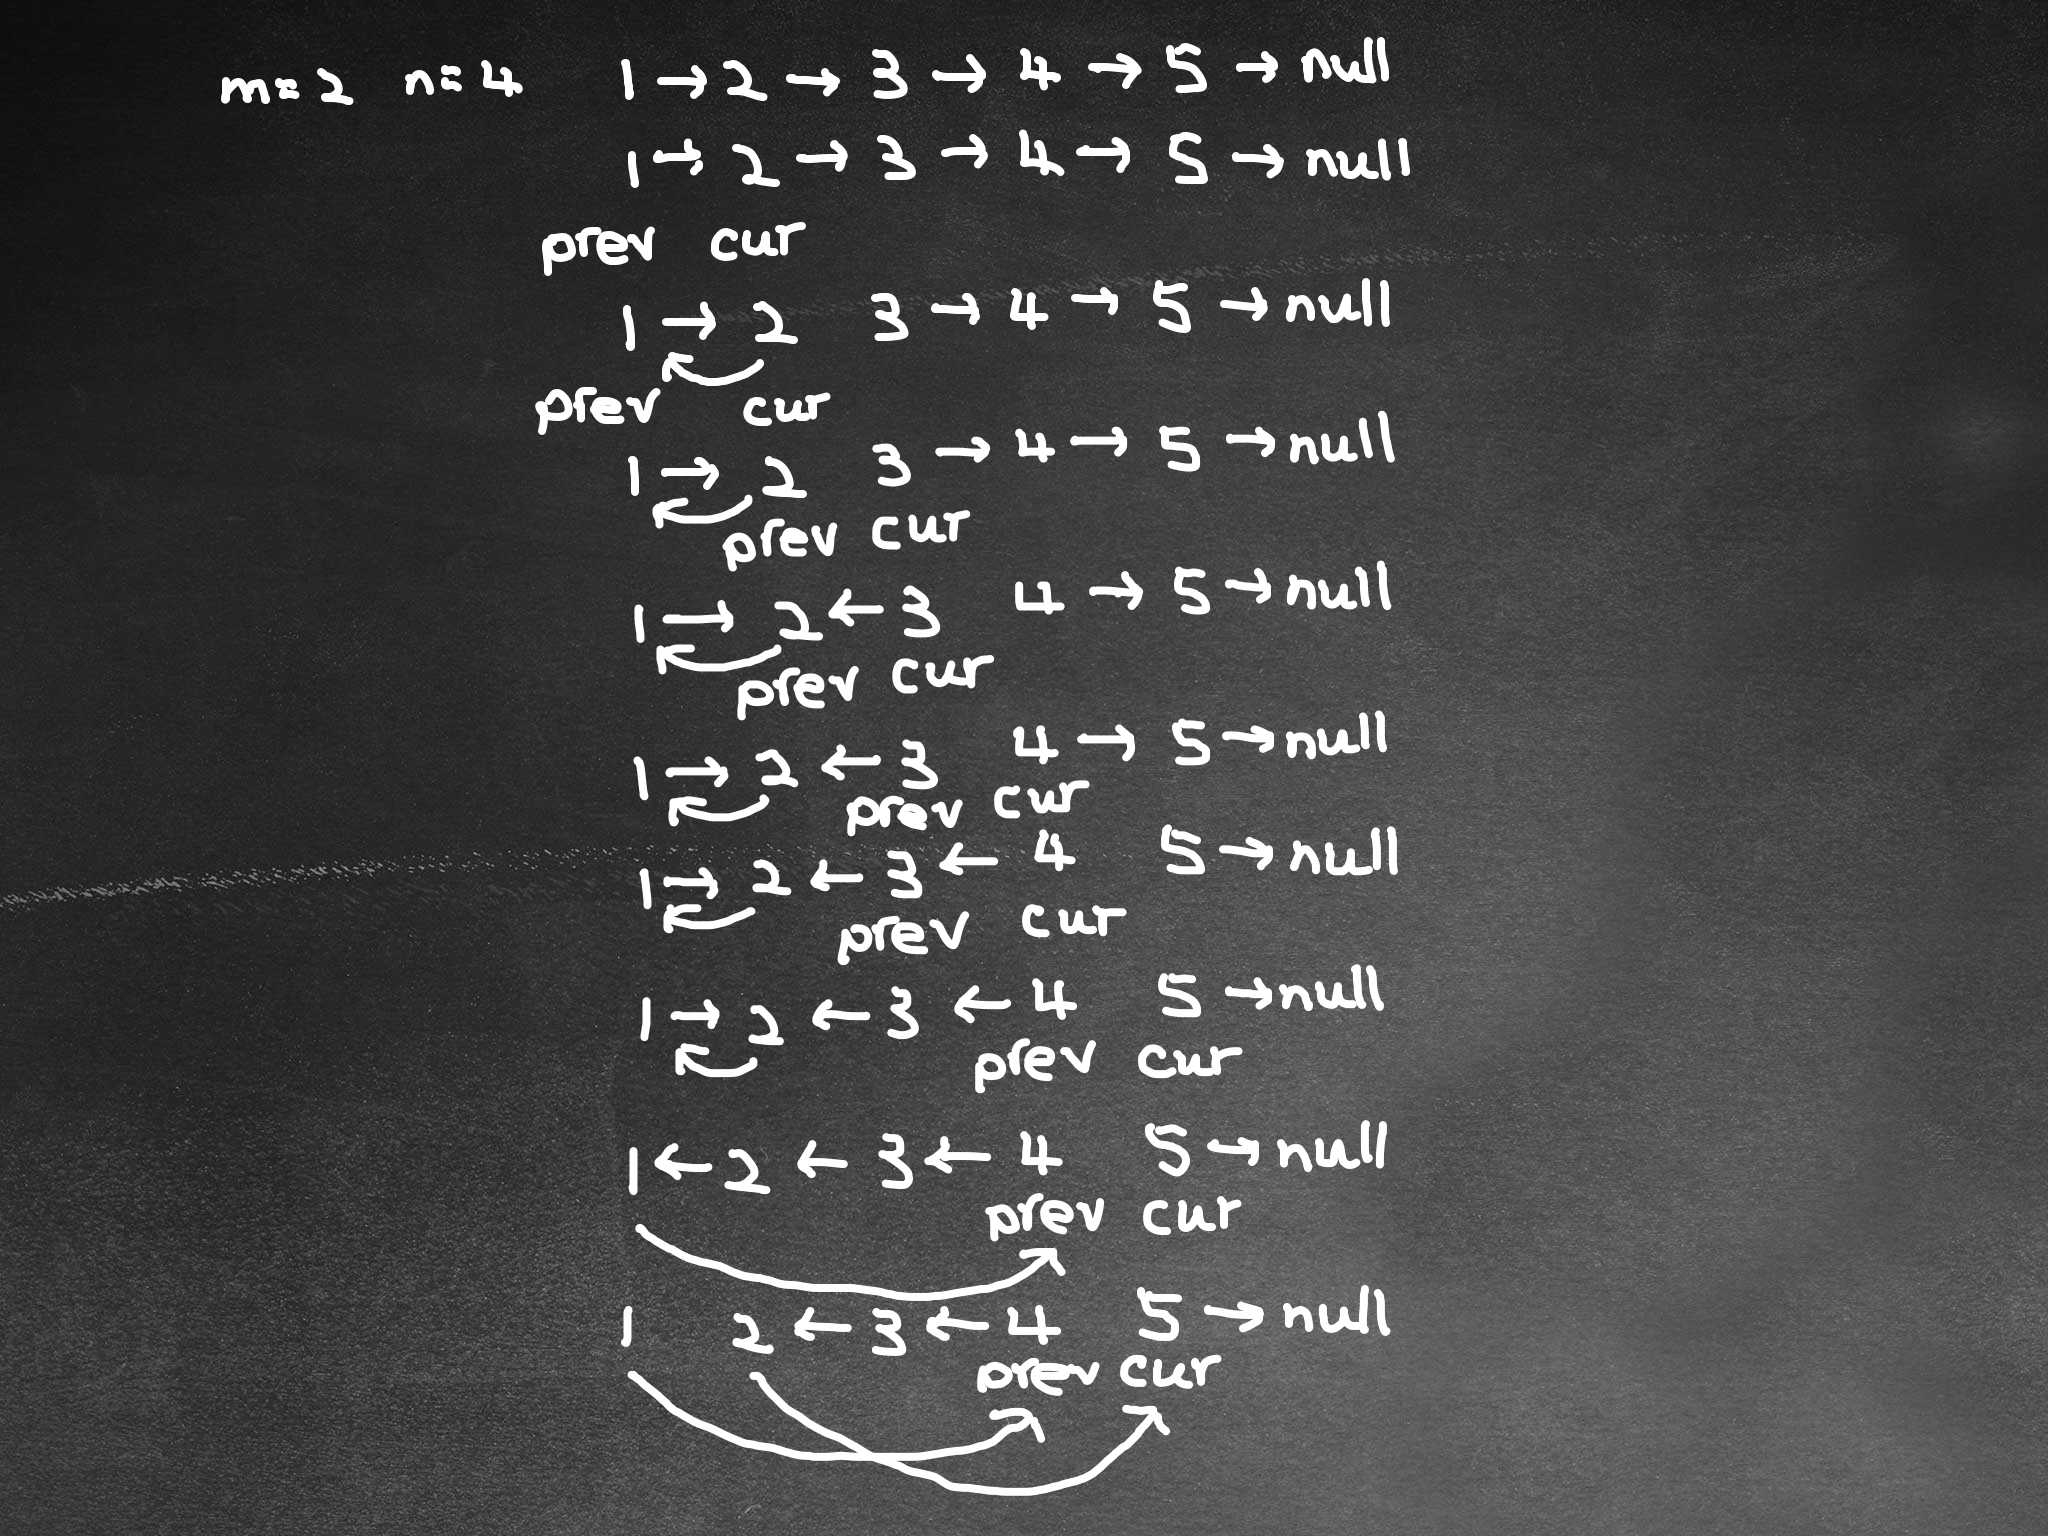 m=2 n=4 1 → 2 → 3 → 4 → 5 → null
1 → 2 → 3 → 4 → 5 → null
prev cur
1 → 2 3 → 4 → 5 → null
prev cur
1 → 2 3 → 4 → 5 → null
prev cur
1 → 2 ← 3 4 → 5 → null
prev cur
1 → 2 ← 3 4 → 5 → null
prev cur
1 → 2 ← 3 ← 4 5 → null
prev cur
1 → 2 ← 3 ← 4 5 → null
prev cur
1 ← 2 ← 3 ← 4 5 → null
prev cur
1 2 ← 3 ← 4 5 → null
prev cur